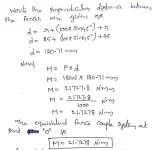 Now the perpendicular distance between
the forces are given as
d = r + (100 × sin45° + r
d = 25 + 100 × sin45° + 25
d = 120.71 mm
Now,
M = F × d
M = 180N × 120.71 mm
M = 21727.8 N·mm
M = 21727.8 / 1000 N·m
M = 21.7278 N·m
The equivalent force couple system at
point "O" is
M = 21.7278 N·m